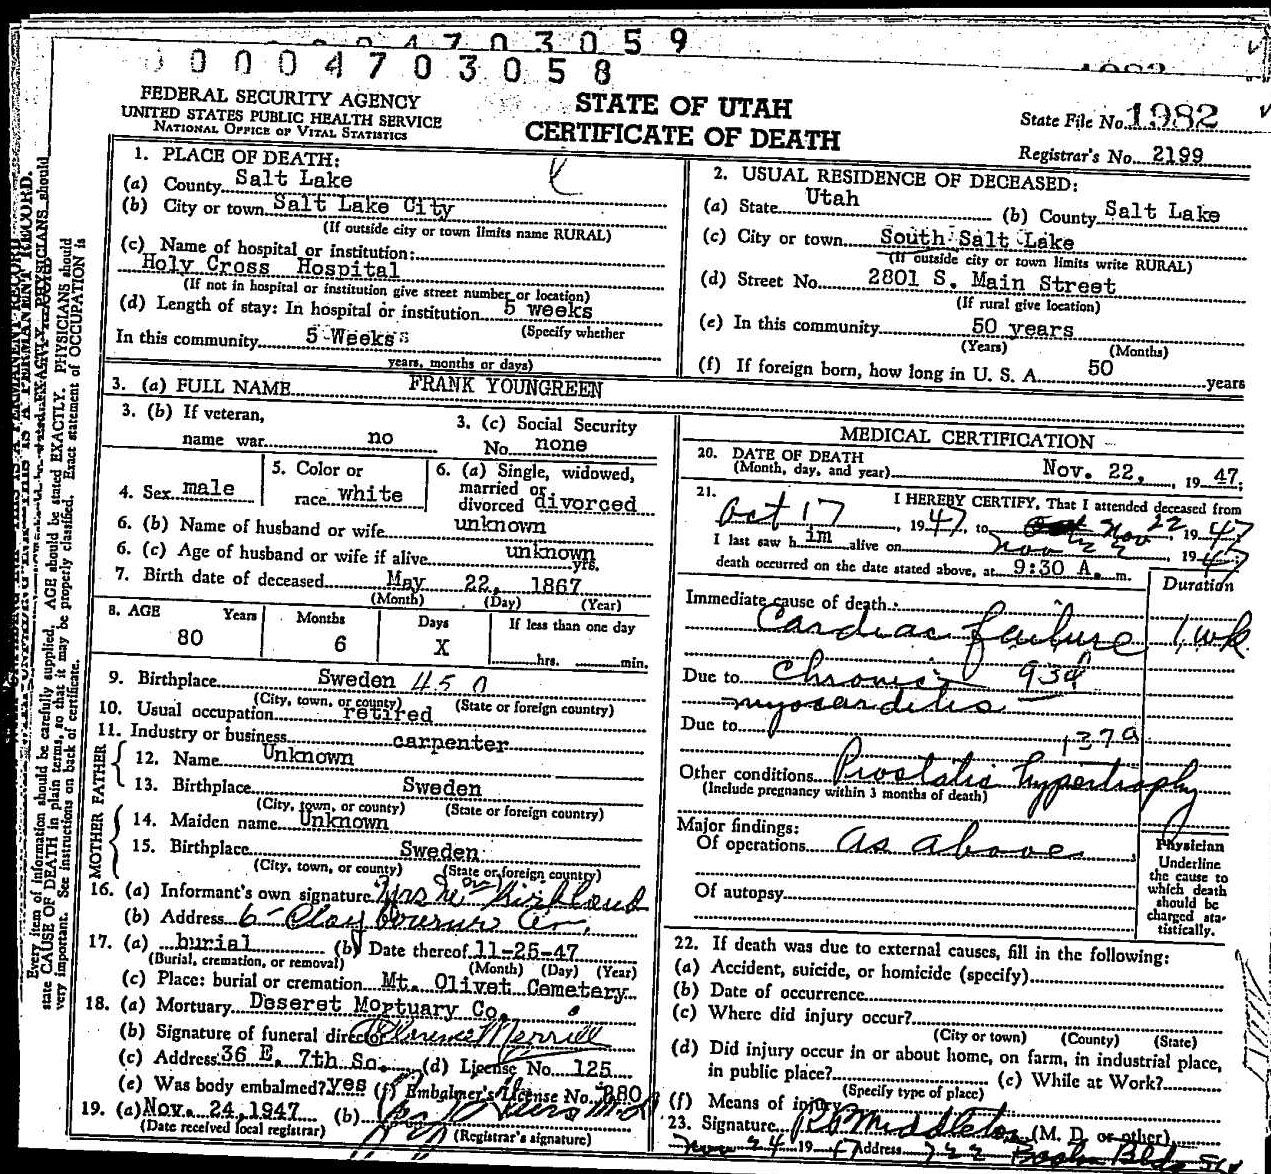 4703059
00004703058
FEDERAL SECURITY AGENCY
UNITED STATES PUBLIC HEALTH SERVICE
NATIONAL OFFICE OF VITAL STATISTICS
STATE OF UTAH
CERTIFICATE OF DEATH
State File No. 1982
Registrar's No. 2199
Every item of information should be carefully supplied. AGE should be stated EXACTLY. PHYSICIANS should
state CAUSE OF DEATH in plain terms, so that it may be properly classified. Exact statement of OCCUPATION is
very important. See instructions on back of certificate.
1. PLACE OF DEATH:
(a) County Salt Lake
(b) City or town Salt Lake City
(If outside city or town limits name RURAL)
(c) Name of hospital or institution:
Holy Cross Hospital
(If not in hospital or institution give street number or location)
(d) Length of stay: In hospital or institution 5 weeks
(Specify whether
In this community 5 Weeks
years, months or days)
2. USUAL RESIDENCE OF DECEASED:
(a) State Utah (b) County Salt Lake
(c) City or town South Salt Lake
(If outside city or town limits write RURAL)
(d) Street No. 2801 S. Main Street
(If rural give location)
(e) In this community 50 years
(Years) (Months)
(f) If foreign born, how long in U. S. A. 50 years
3. (a) FULL NAME FRANK YOUNGREEN
3. (b) If veteran,
name war no
3. (c) Social Security
No. none
4. Sex male
5. Color or
race white
6. (a) Single, widowed,
married or
divorced divorced
6. (b) Name of husband or wife unknown
6. (c) Age of husband or wife if alive unknown yrs.
7. Birth date of deceased May 22, 1867
(Month) (Day) (Year)
8. AGE Years Months Days If less than one day
80 6 X hrs. min.
9. Birthplace Sweden 450
(City, town, or county) (State or foreign country)
10. Usual occupation retired
11. Industry or business carpenter
FATHER
12. Name Unknown
13. Birthplace Sweden
(City, town, or county) (State or foreign country)
MOTHER
14. Maiden name Unknown
15. Birthplace Sweden
(City, town, or county) (State or foreign country)
16. (a) Informant's own signature Mrs
(b) Address 6
17. (a) burial (b) Date thereof 11-25-47
(Burial, cremation, or removal) (Month) (Day) (Year)
(c) Place: burial or cremation Mt. Olivet Cemetary
18. (a) Mortuary Deseret Mortuary Co.
(b) Signature of funeral director Merrill
(c) Address 36 E. 7th So. (d) License No. 125
(e) Was body embalmed? yes (f) Embalmer's License No. 380
19. (a) Nov. 24, 1947 (b)
(Date received local registrar) (Registrar's signature)
MEDICAL CERTIFICATION
20. DATE OF DEATH
(Month, day, and year) Nov. 22, 1947;
21. I HEREBY CERTIFY, That I attended deceased from
Oct 17, 1947, to Nov 22, 1947
I last saw him alive on Nov 22 1947
death occurred on the date stated above, at 9:30 A. m.
Duration
Immediate cause of death:
Cardiac failure 1 wk
Due to Chronic 93d
myocarditis
Due to
137a
Other conditions Prostatic hypertrophy
(Include pregnancy within 3 months of death)
Major findings:
Of operations as above
Of autopsy
Physician
Underline
the cause to
which death
should be
charged sta-
tistically.
22. If death was due to external causes, fill in the following:
(a) Accident, suicide, or homicide (specify)
(b) Date of occurrence
(c) Where did injury occur?
(City or town) (County) (State)
(d) Did injury occur in or about home, on farm, in industrial place,
in public place? (c) While at Work?
(Specify type of place)
(f) Means of injury
23. Signature Middleton (M. D. or other)
Nov 24 1947 Address 722 Boston Bldg